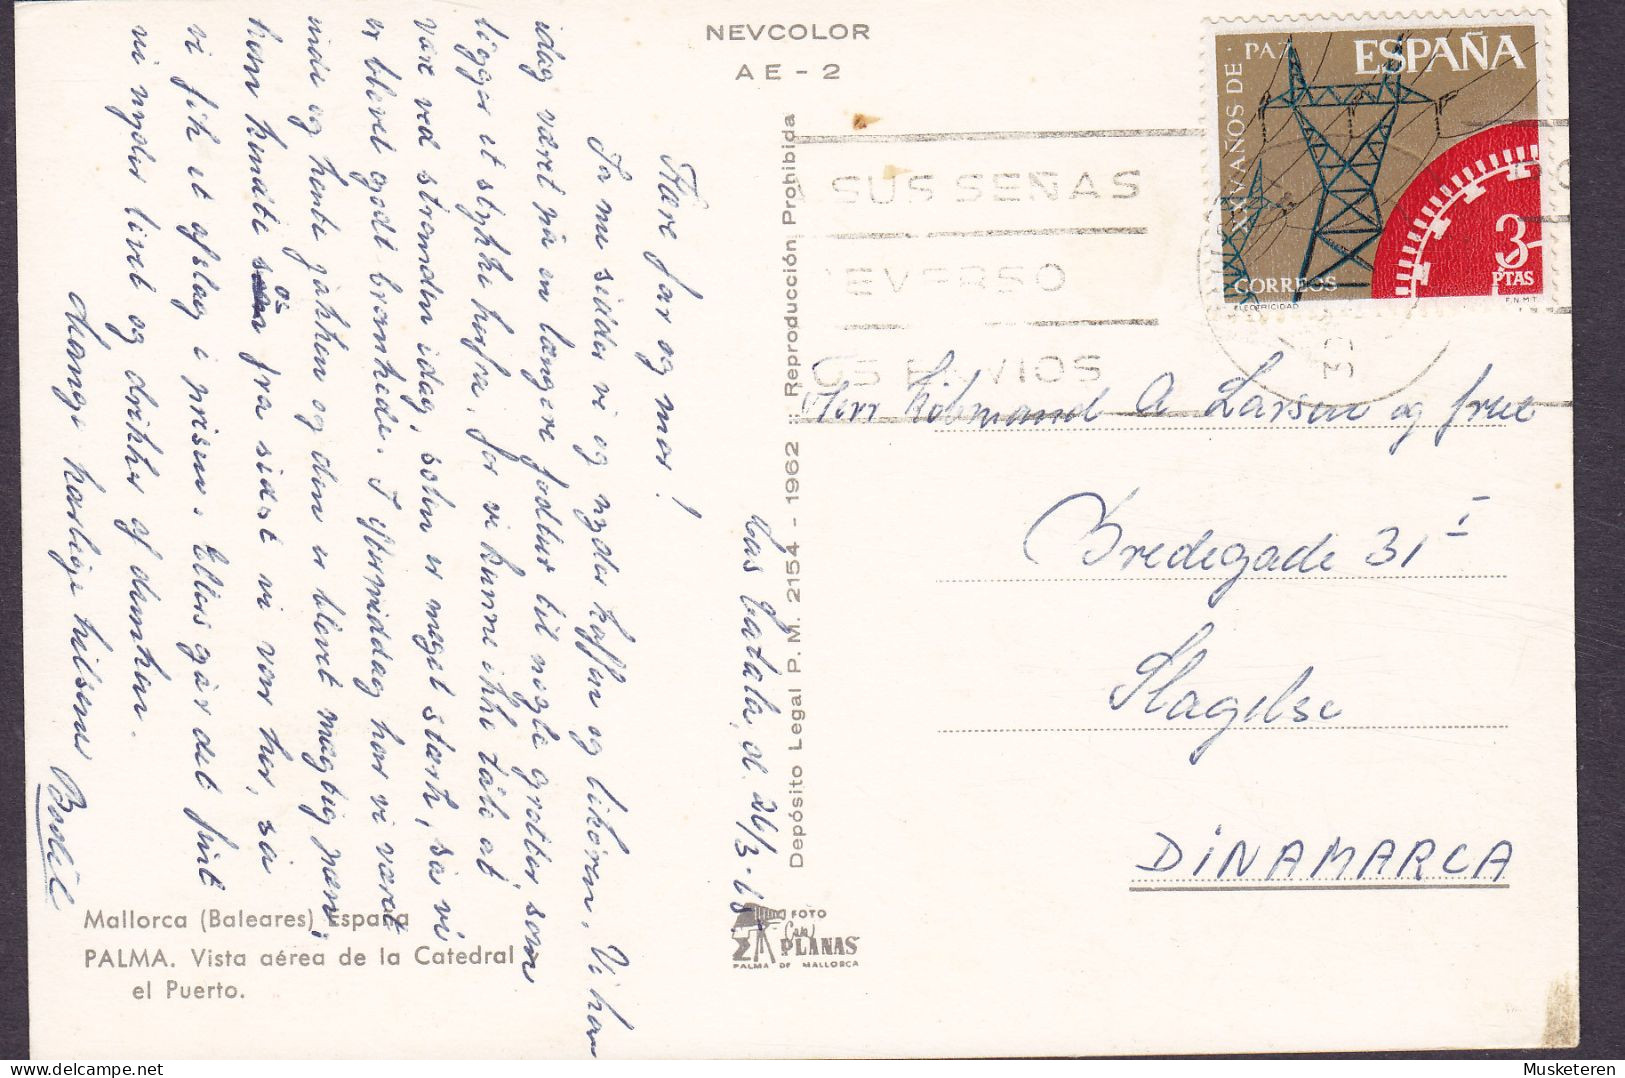 NEVCOLOR
AE - 2
XXV AÑOS DE PAZ
ESPAÑA
3
PTAS
CORREOS
ELECTRICIDAD
F.N.M.T.
SUS SEÑAS
EVERSO
OS ENVIOS
Las Catala, d. 26/3-
Kære far og mor!
Ja nu sidder vi og nyder kaffen og likøren. Vi har
idag været på en længere fodtur til nogle grotter, som
ligger et stykke herfra. For vi kunne ikke tåle at
være ved stranden idag, solen er meget stærk, så vi
er blevet godt brændede. I eftermiddag har vi været
inde og hente jakken og den er blevet mægtig pæn,
han kendte os fra sidst vi var her, så
vi fik et afslag i prisen. Ellers går det fint
vi nyder livet og drikker af dunken.
Mange kærlige hilsener Bodil
Herr Købmand A Larsen og frue
Bredegade 31 I
Slagelse
DINAMARCA
Depósito Legal P. M. 2154 - 1962 :: Reproducción Prohibida
FOTO
PLANAS
PALMA DE MALLORCA
Mallorca (Baleares) España
PALMA. Vista aérea de la Catedral
el Puerto.
delcampe.net
Musketeren